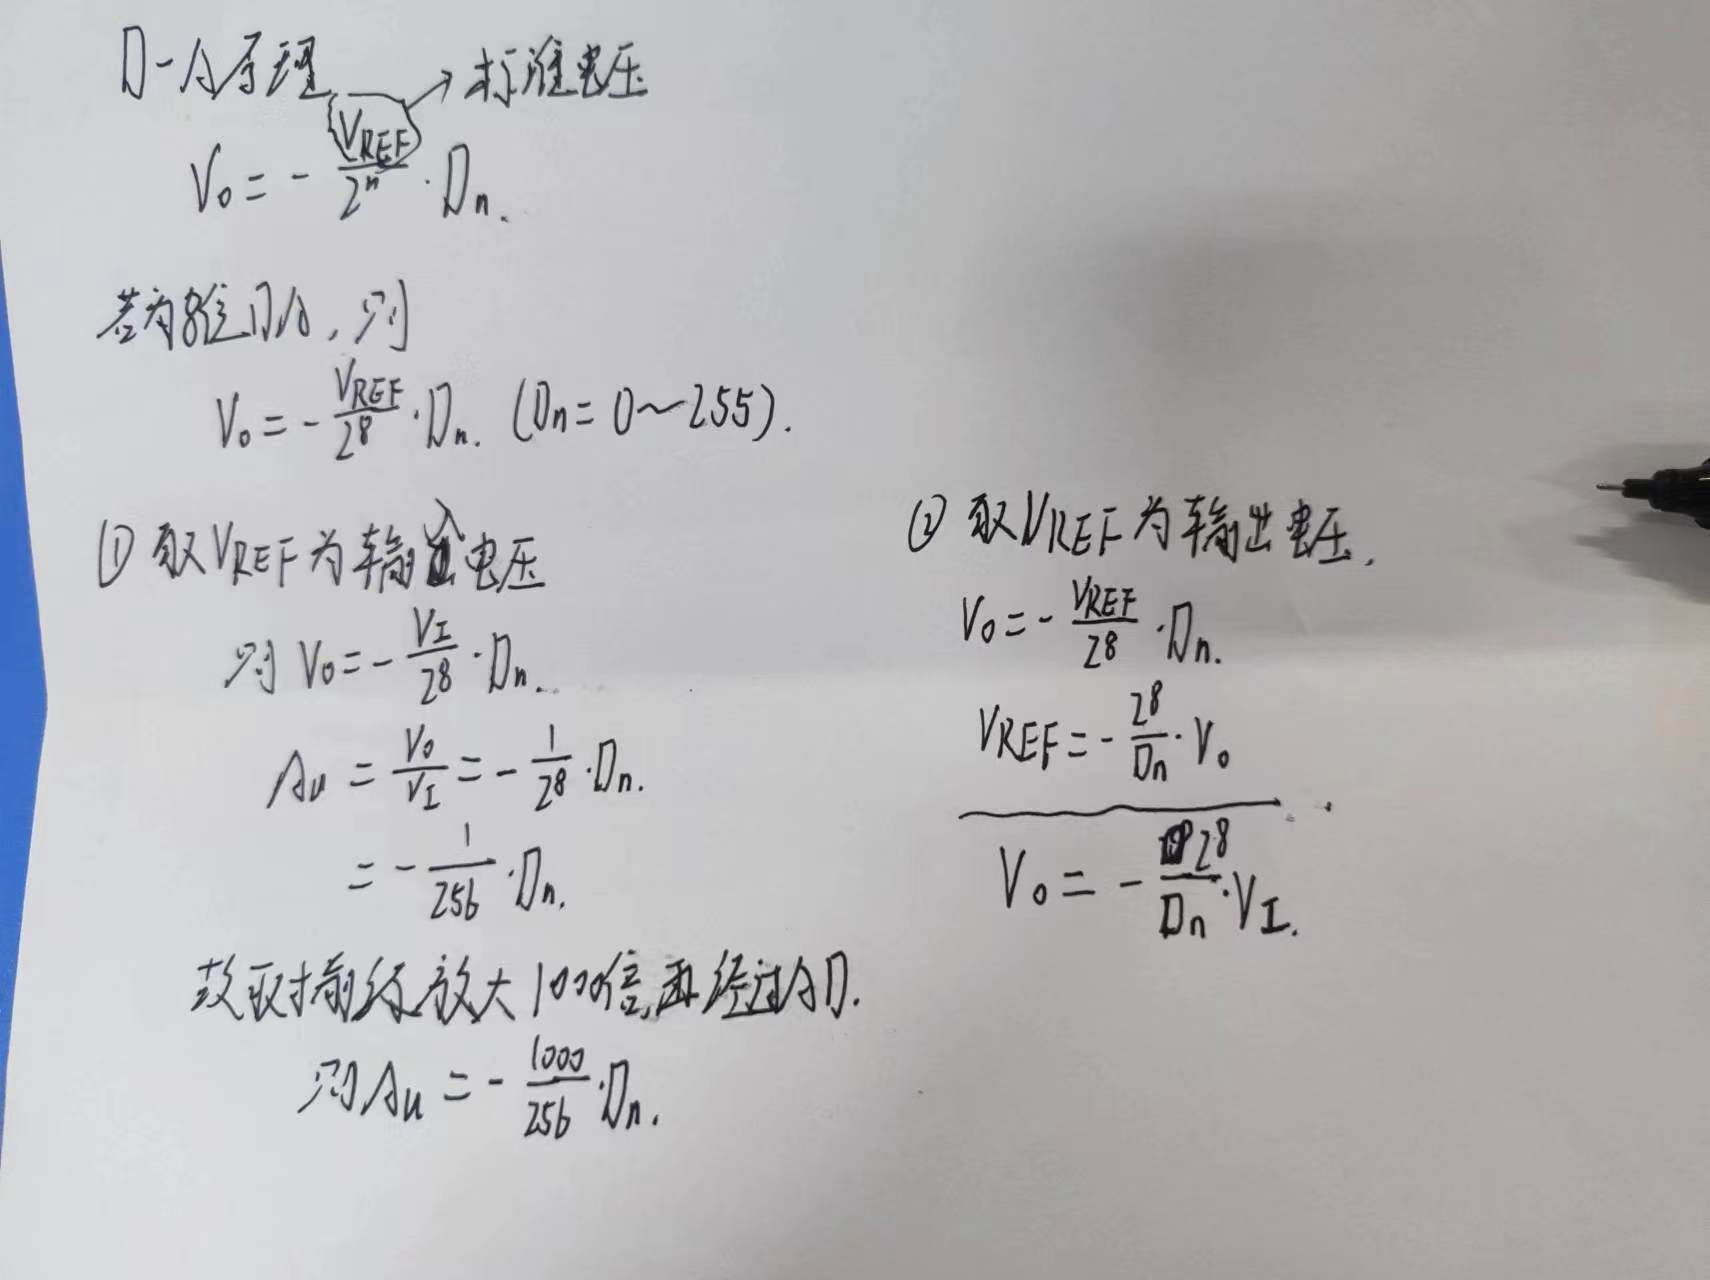 D-A原理
V_REF → 标准电压
V₀ = - V_REF / 2ⁿ · Dₙ.
若为8位DA, 则
V₀ = - V_REF / 2⁸ · Dₙ. (Dₙ = 0~255).
① 取V_REF为输入电压
则 V₀ = - V_I / 2⁸ · Dₙ.
Au = V₀ / V_I = - 1 / 2⁸ · Dₙ.
= - 1 / 256 · Dₙ.
故取
放大1000倍,再经过AD.
则Au = - 1000 / 256 · Dₙ.
② 取V_REF为输出电压.
V₀ = - V_REF / 2⁸ · Dₙ.
V_REF = - 2⁸ / Dₙ · V₀
V₀ = - 2⁸ / Dₙ · V_I.